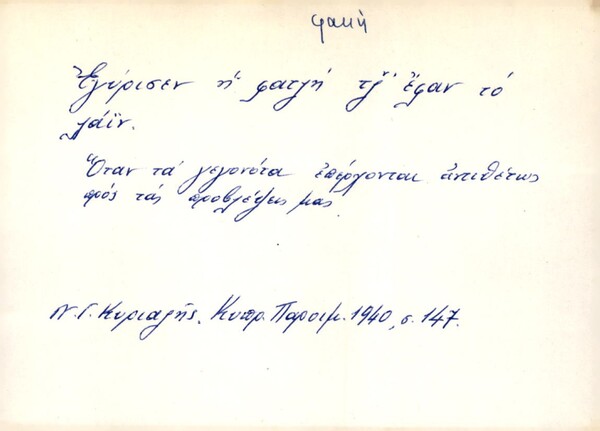 φακή
Ἐγύρισεν ἡ φατζή τζ̌' ἔφαν τό
λάϊν.
Ὅταν τά γεγονότα ἐπέρχονται ἀντιθέτως
πρός τάς προβλέψεις μας
Ν. Γ. Κυριαζῆς, Κυπρ. Παροιμ. 1940, σ. 147.